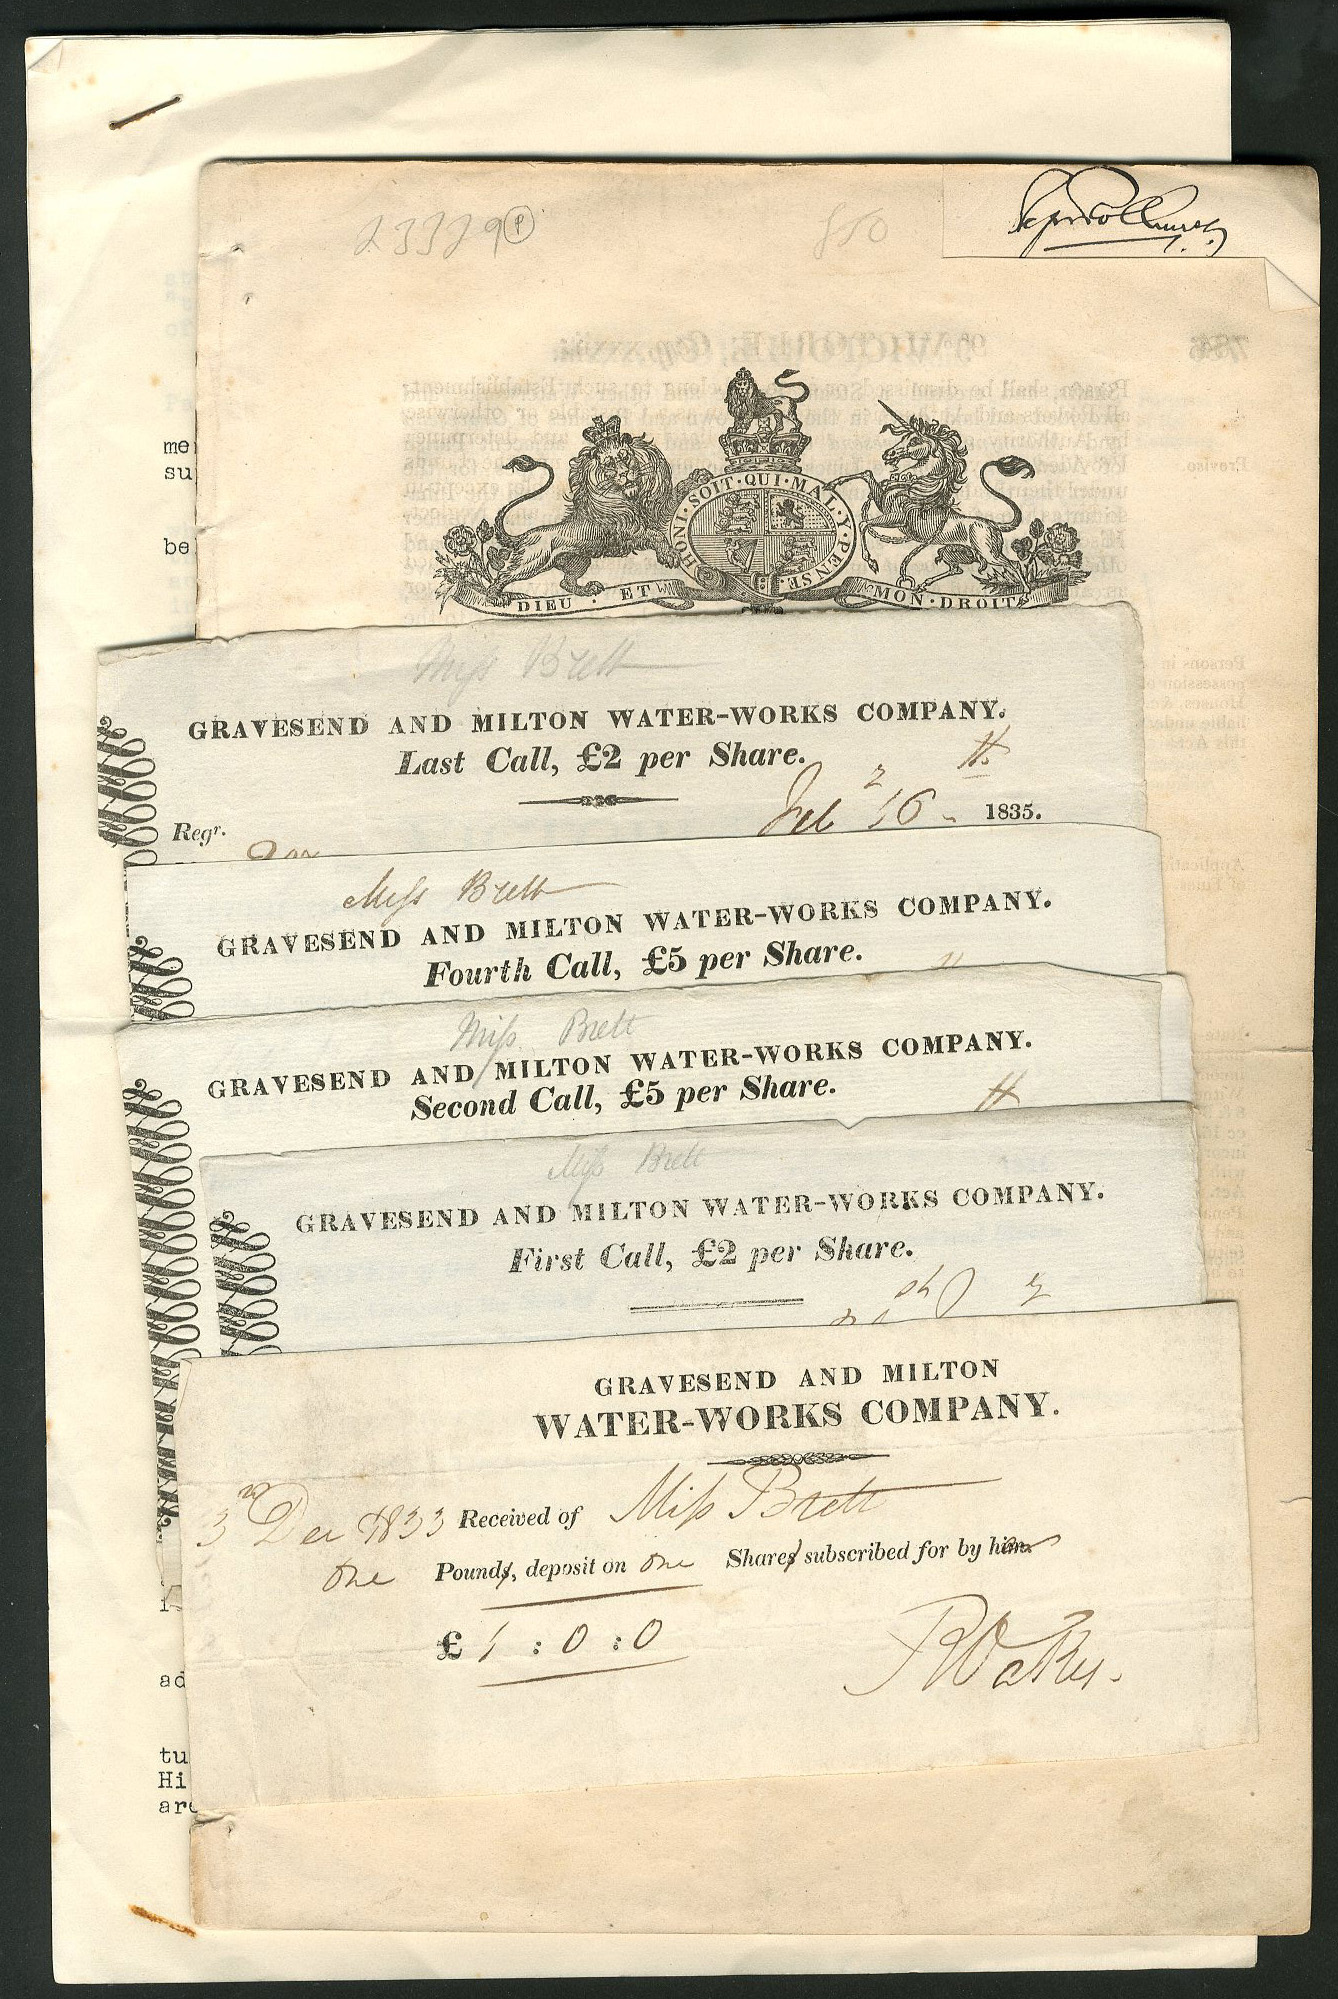 23329 P
850
HONI · SOIT · QUI · MAL · Y · PENSE
DIEU · ET MON · DROIT
me
su
be
Miss Brett
GRAVESEND AND MILTON WATER-WORKS COMPANY.
Last Call, £2 per Share.
Feb 16 1835.
Regr.
Miss Brett
GRAVESEND AND MILTON WATER-WORKS COMPANY.
Fourth Call, £5 per Share.
Miss Brett
GRAVESEND AND MILTON WATER-WORKS COMPANY.
Second Call, £5 per Share.
Miss Brett
GRAVESEND AND MILTON WATER-WORKS COMPANY.
First Call, £2 per Share.
GRAVESEND AND MILTON
WATER-WORKS COMPANY.
3rd Dec 1833 Received of Miss Brett
One Pounds, deposit on one Shares subscribed for by him.
£ 1 : 0 : 0
ad
tu
Hi
are